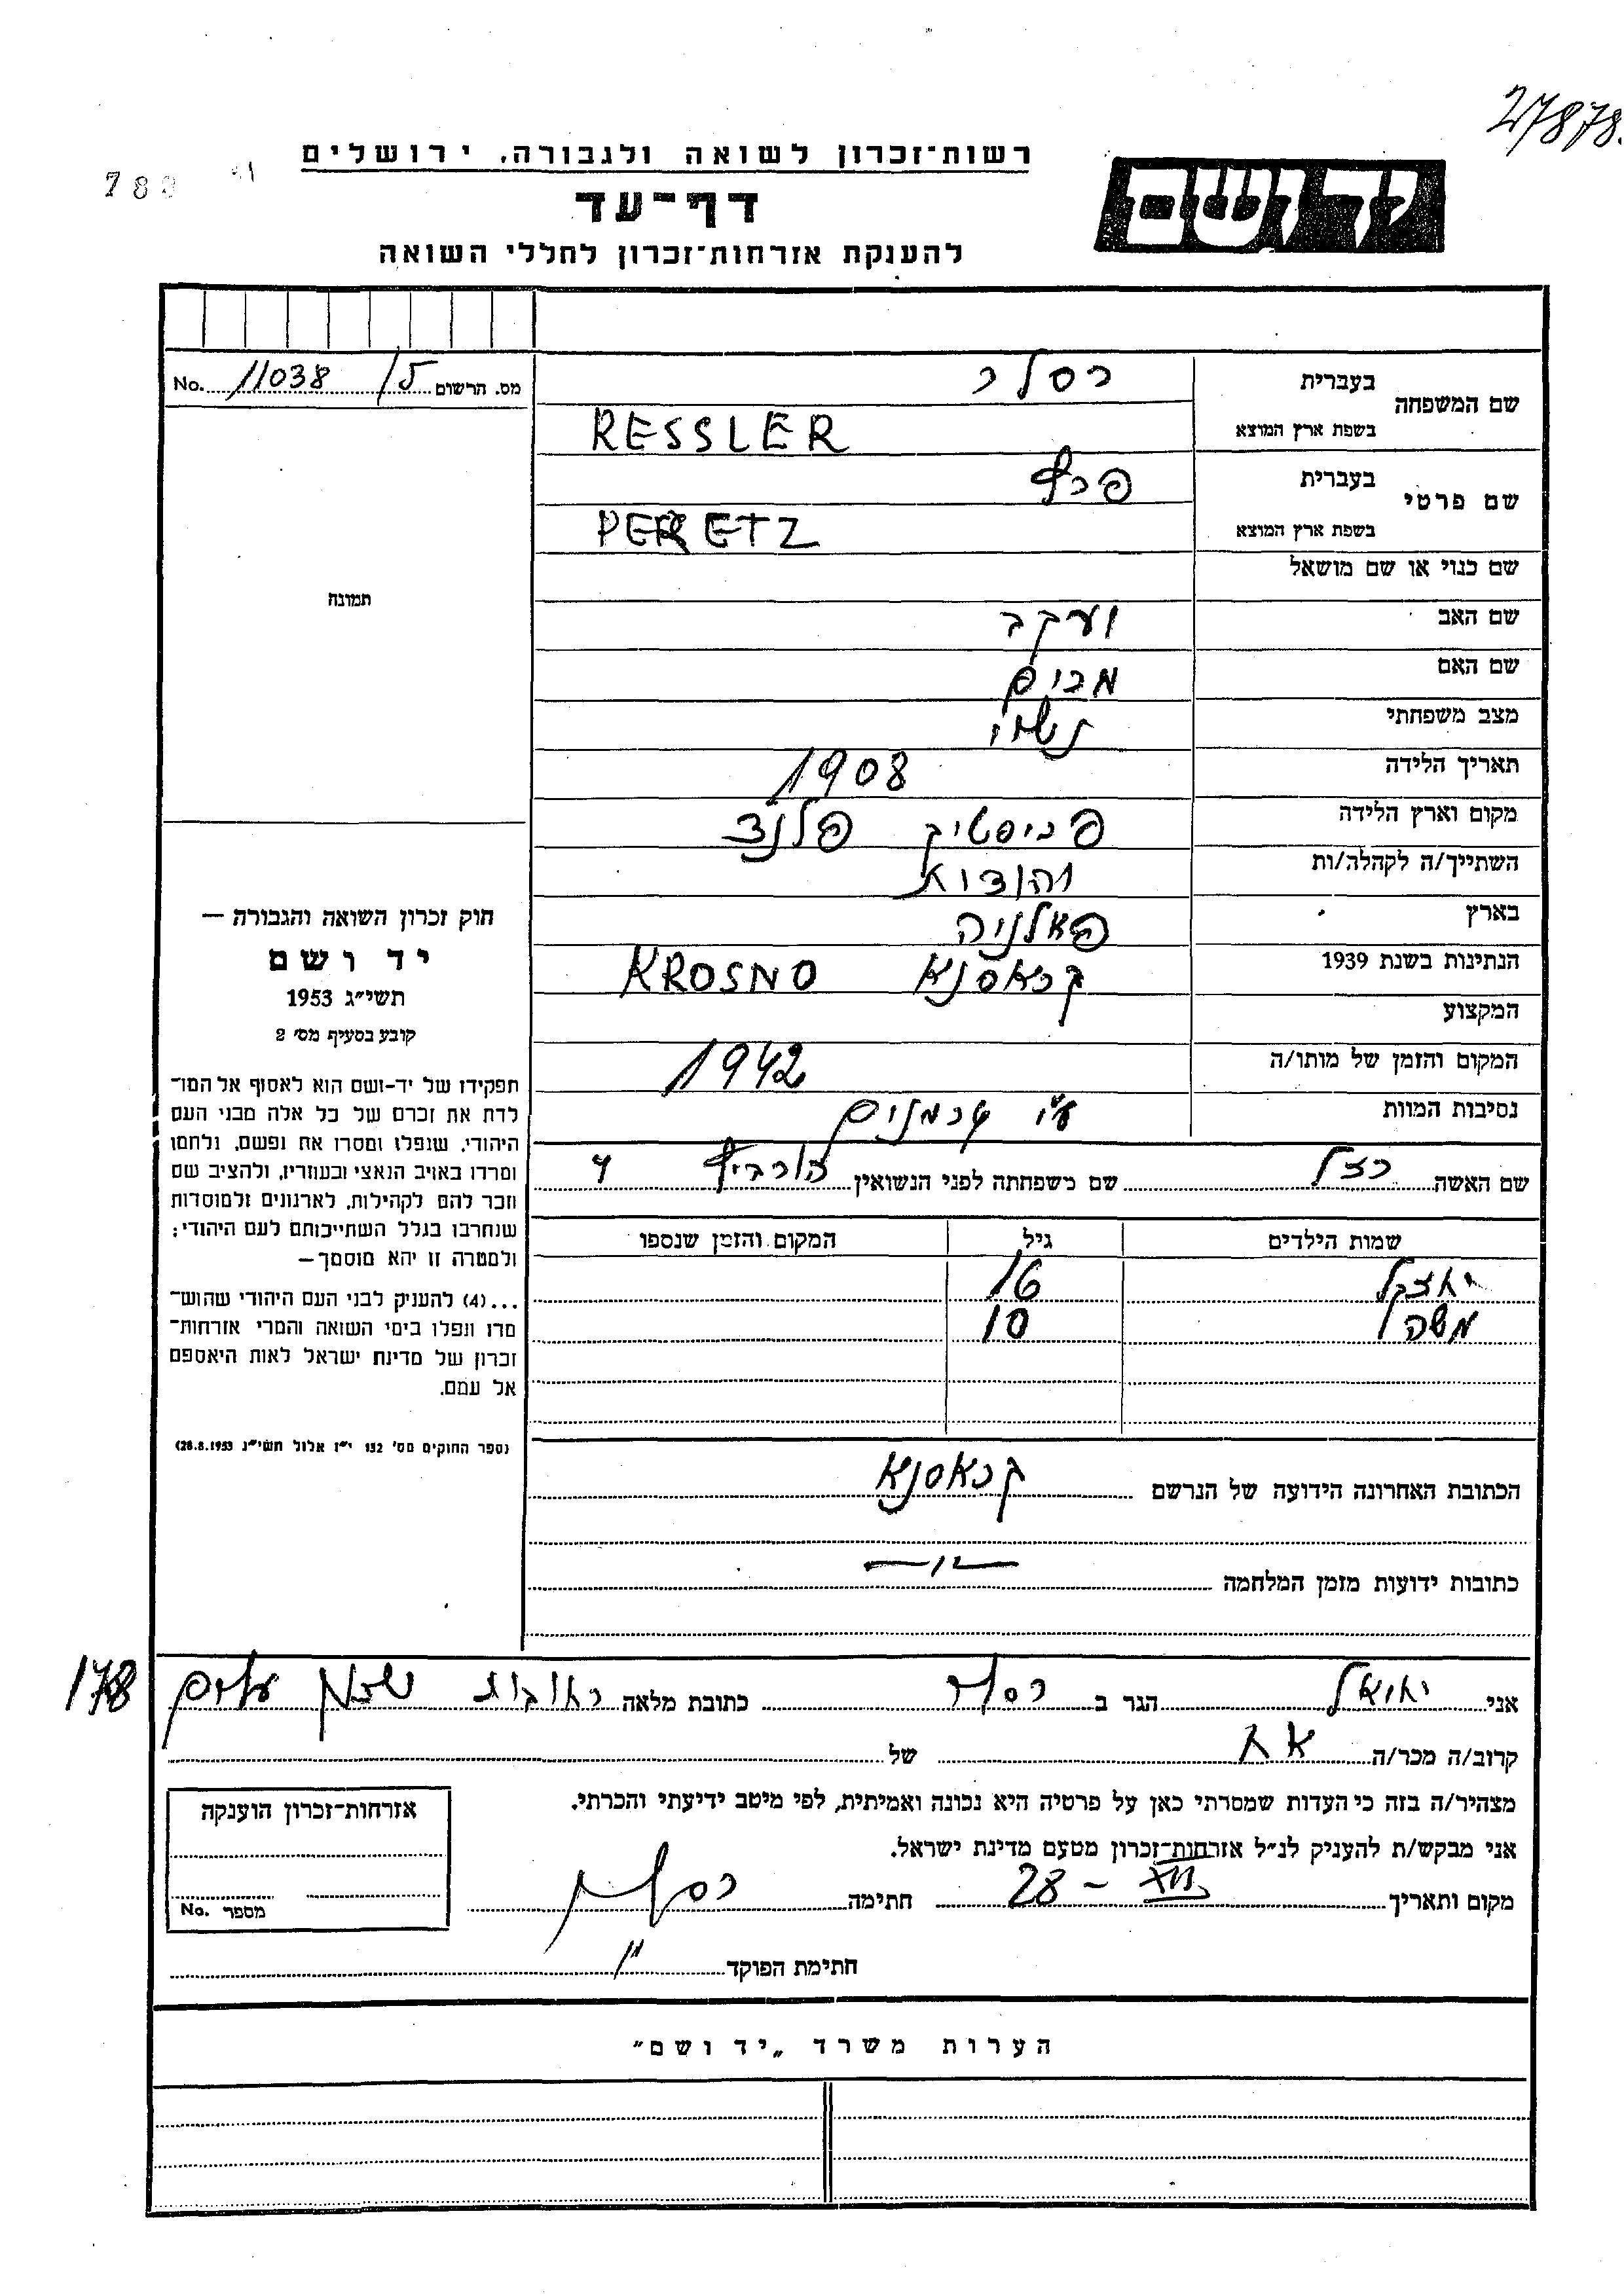 27878.
רשות־זכרון לשואה ולגבורה, ירושלים
יד ושם
780
דף־עד
להענקת אזרחות־זכרון לחללי השואה
מס. הרשום 11038/5 No.
שם המשפחה
בעברית רסלר
בשפת ארץ המוצא RESSLER
שם פרטי
בעברית פרץ
בשפת ארץ המוצא PERETZ
שם כנוי או שם מושאל
תמונה
שם האב יעקב
שם האם מרים
מצב משפחתי נשוי
תאריך הלידה 1908
מקום וארץ הלידה פריסטיק פולנד
השתייך/ה לקהלה/ות יהודית
בארץ פאלניה
הנתינות בשנת 1939 קראסנא KROSNO
המקצוע
המקום והזמן של מותו/ה 1942
נסיבות המוות ע"י גרמנים
שם האשה רצל שם משפחתה לפני הנשואין הורביץ
שמות הילדים גיל המקום והזמן שנספו
יאצקל 16
משה 10
הכתובת האחרונה הידועה של הנרשם קראסנא
כתובות ידועות מזמן המלחמה —"—
חוק זכרון השואה והגבורה —
יד ושם
תשי״ג 1953
קובע בסעיף מס׳ 2
תפקידו של יד-ושם הוא לאסוף אל המו־
לדת את זכרם של כל אלה מבני העם
היהודי, שנפלו ומסרו את נפשם, נלחמו
ומרדו באויב הנאצי ובעוזריו, ולהציב שם
וזכר להם לקהילות, לארגונים ולמוסדות
שנחרבו בגלל השתייכותם לעם היהודי;
ולמטרה זו יהא מוסמך—
...(4) להעניק לבני העם היהודי שהוש־
מדו ונפלו בימי השואה והמרי אזרחות־
זכרון של מדינת ישראל לאות היאספם
אל עמם.
(ספר החוקים מס׳ 132 י״ז אלול תשי״ג 28.8.1953)
אני יואל הגר ב רסלר כתובת מלאה רחובות שיכון עולים 178
קרוב/ה מכר/ה אח של
מצהיר/ה בזה כי העדות שמסרתי כאן על פרטיה היא נכונה ואמיתית, לפי מיטב ידיעתי והכרתי.
אני מבקש/ת להעניק לנ״ל אזרחות־זכרון מטעם מדינת ישראל.
מקום ותאריך 28 - XII חתימה רסלר
חתימת הפוקד
אזרחות־זכרון הוענקה
מספר No.
הערות משרד „יד ושם״